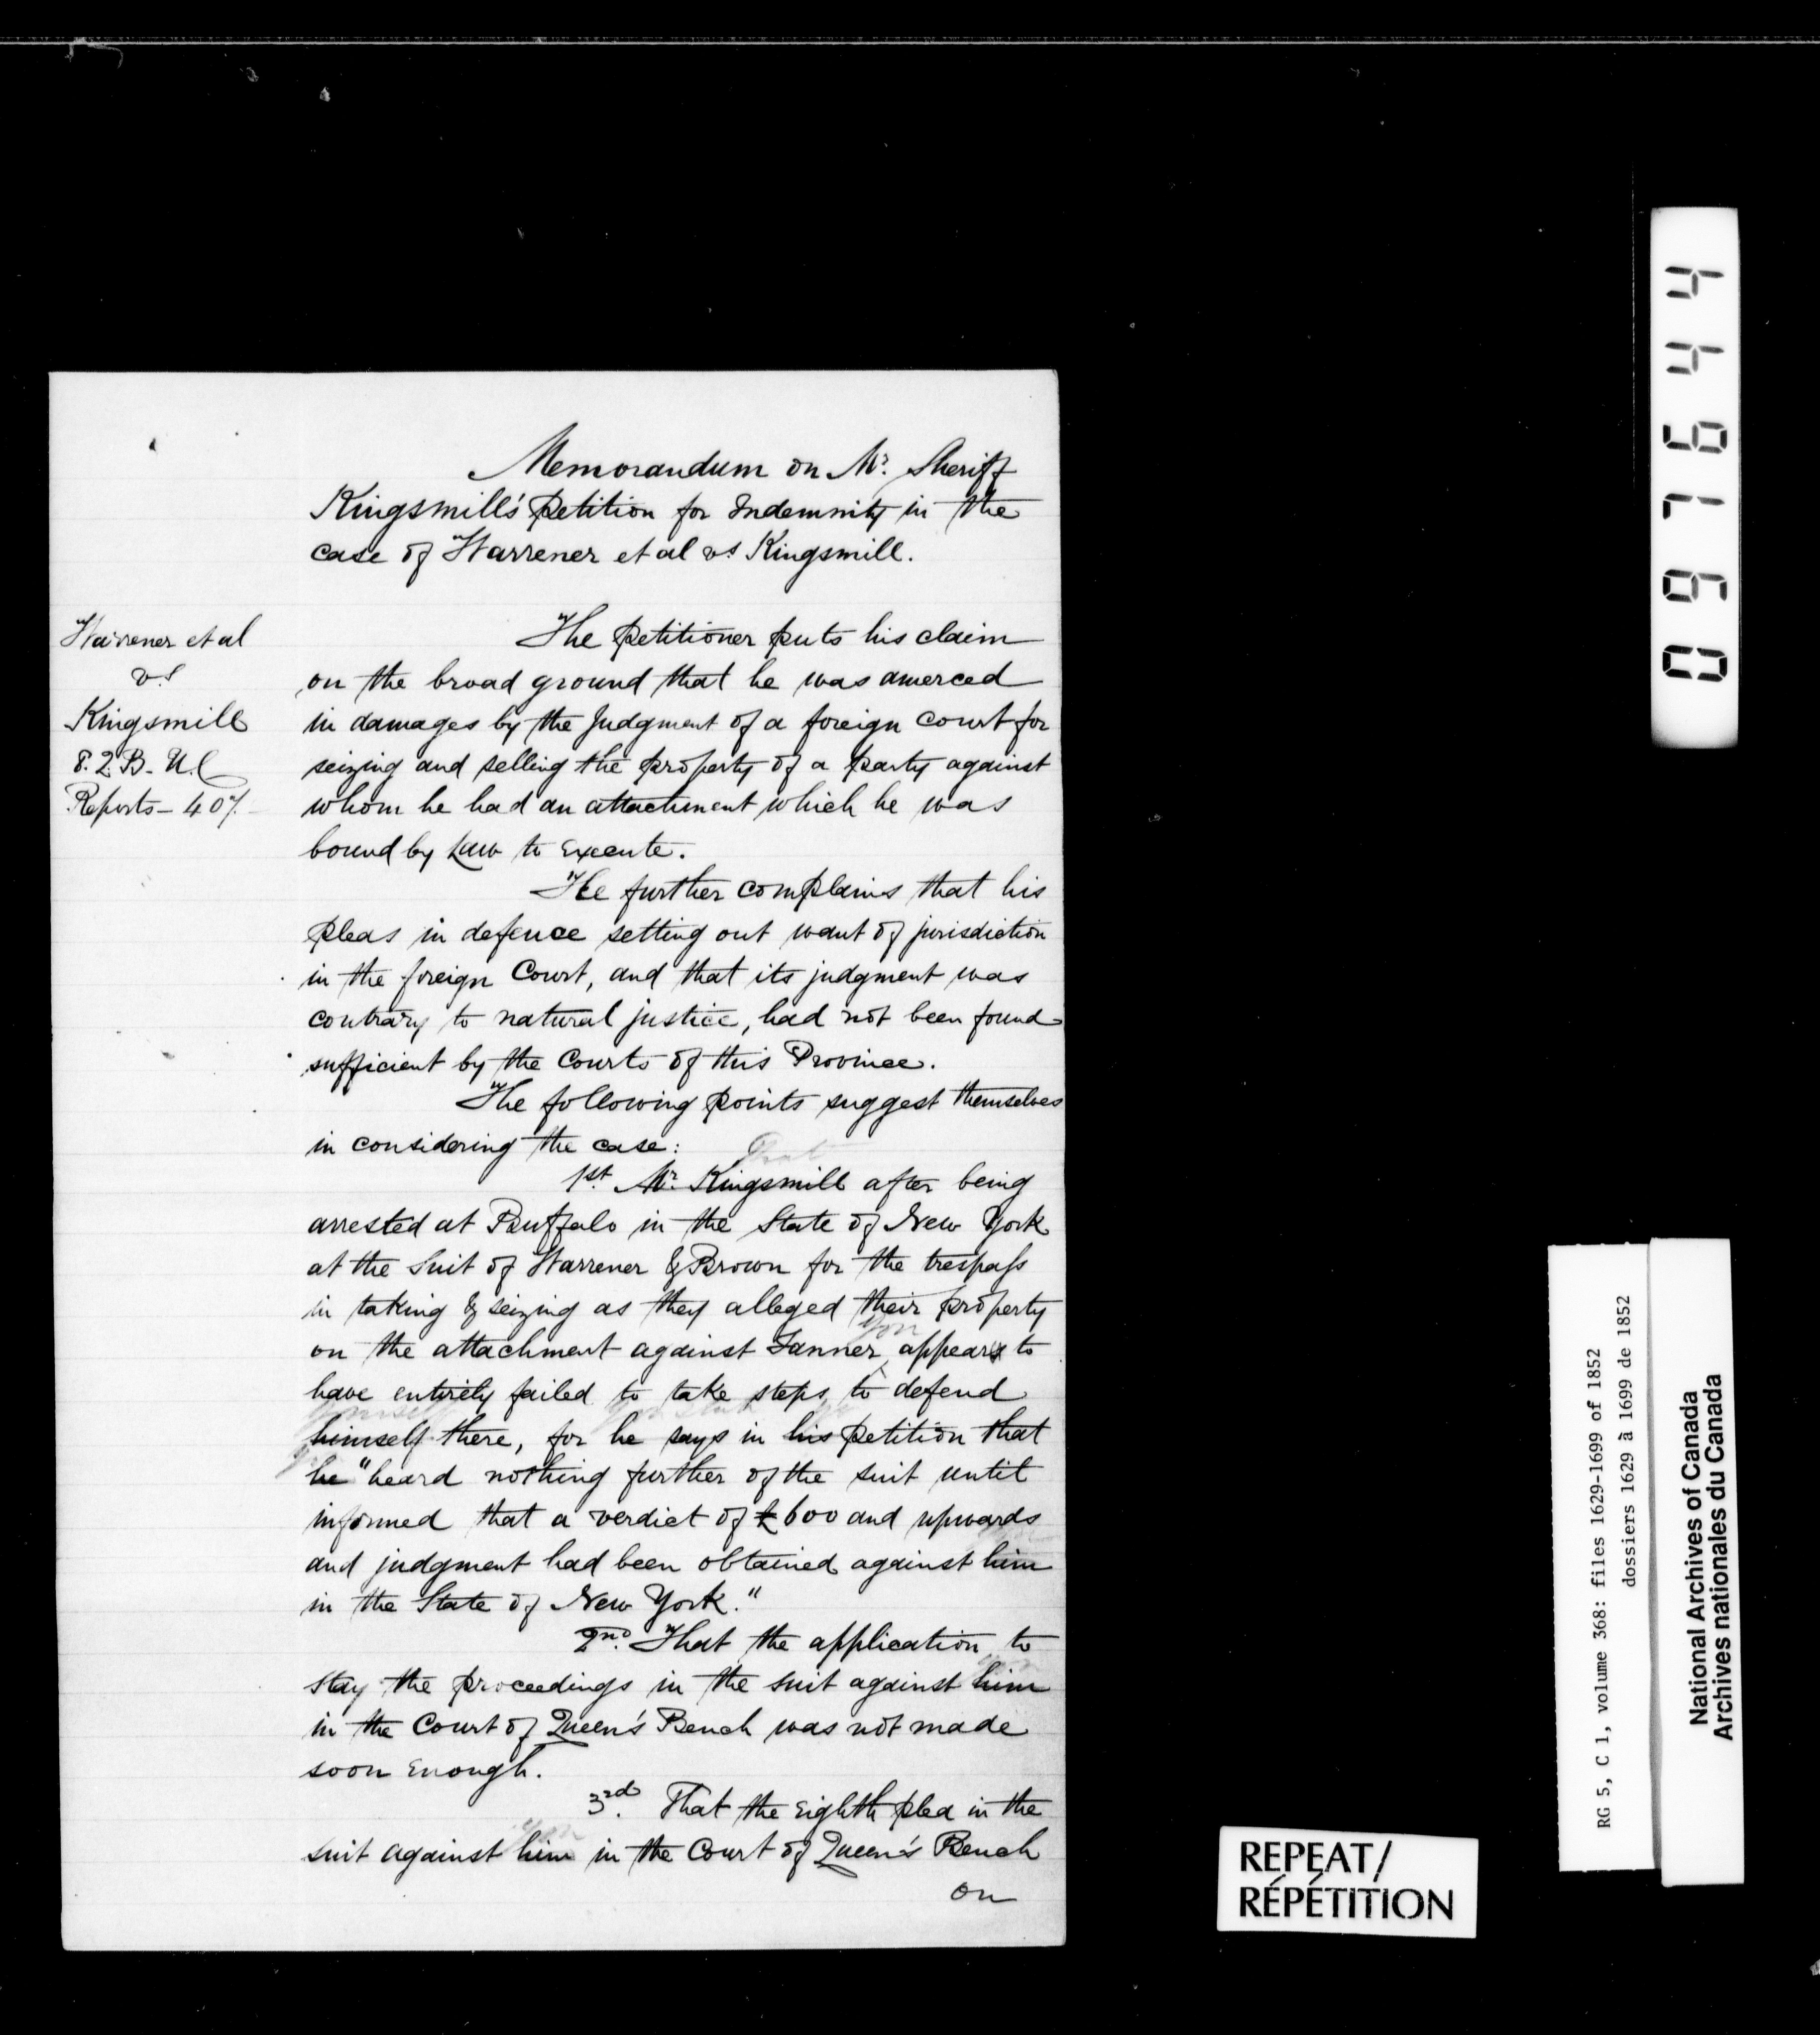 Memorandum on Mr. Sheriff
Kingsmill's petition for Indemnity in the
case of Warrener et al vs Kingsmill.
Warrener et al
vs
Kingsmill
8. Q. B. U. C
Reports - 407.
The petitioner puts his claim
on the broad ground that he was amerced
in damages by the Judgment of a foreign court for
seizing and selling the property of a party against
whom he had an attachment which he was
bound by Law to Execute.
He further complains that his
pleas in defence setting out want of jurisdiction
in the foreign Court, and that its judgment was
contrary to natural justice, had not been found
sufficient by the Courts of this Province.
The following points suggest themselves
in considering the case:
That
1st. Mr. Kingsmill after being
arrested at Buffalo in the State of New York
at the Suit of Warrener & Brown for the trespass
in taking & seizing as they alleged their property
you
on the attachment against Lanner, appears to
have entirely failed to take steps to defend
yourself
himself there, for he says in his petition that
you
he "heard nothing further of the suit until
informed that a verdict of £600 and upwards
and judgment had been obtained against him
in the State of New York."
2nd. That the application to
you
stay the proceedings in the suit against him
in the Court of Queen's Bench was not made
soon Enough.
3rd. That the Eighth plea in the
you
suit against him in the Court of Queen's Bench
on
097644
RG 5, C 1, volume 368: files 1629-1699 of 1852
dossiers 1629 à 1699 de 1852
National Archives of Canada
Archives nationales du Canada
REPEAT/
RÉPÉTITION